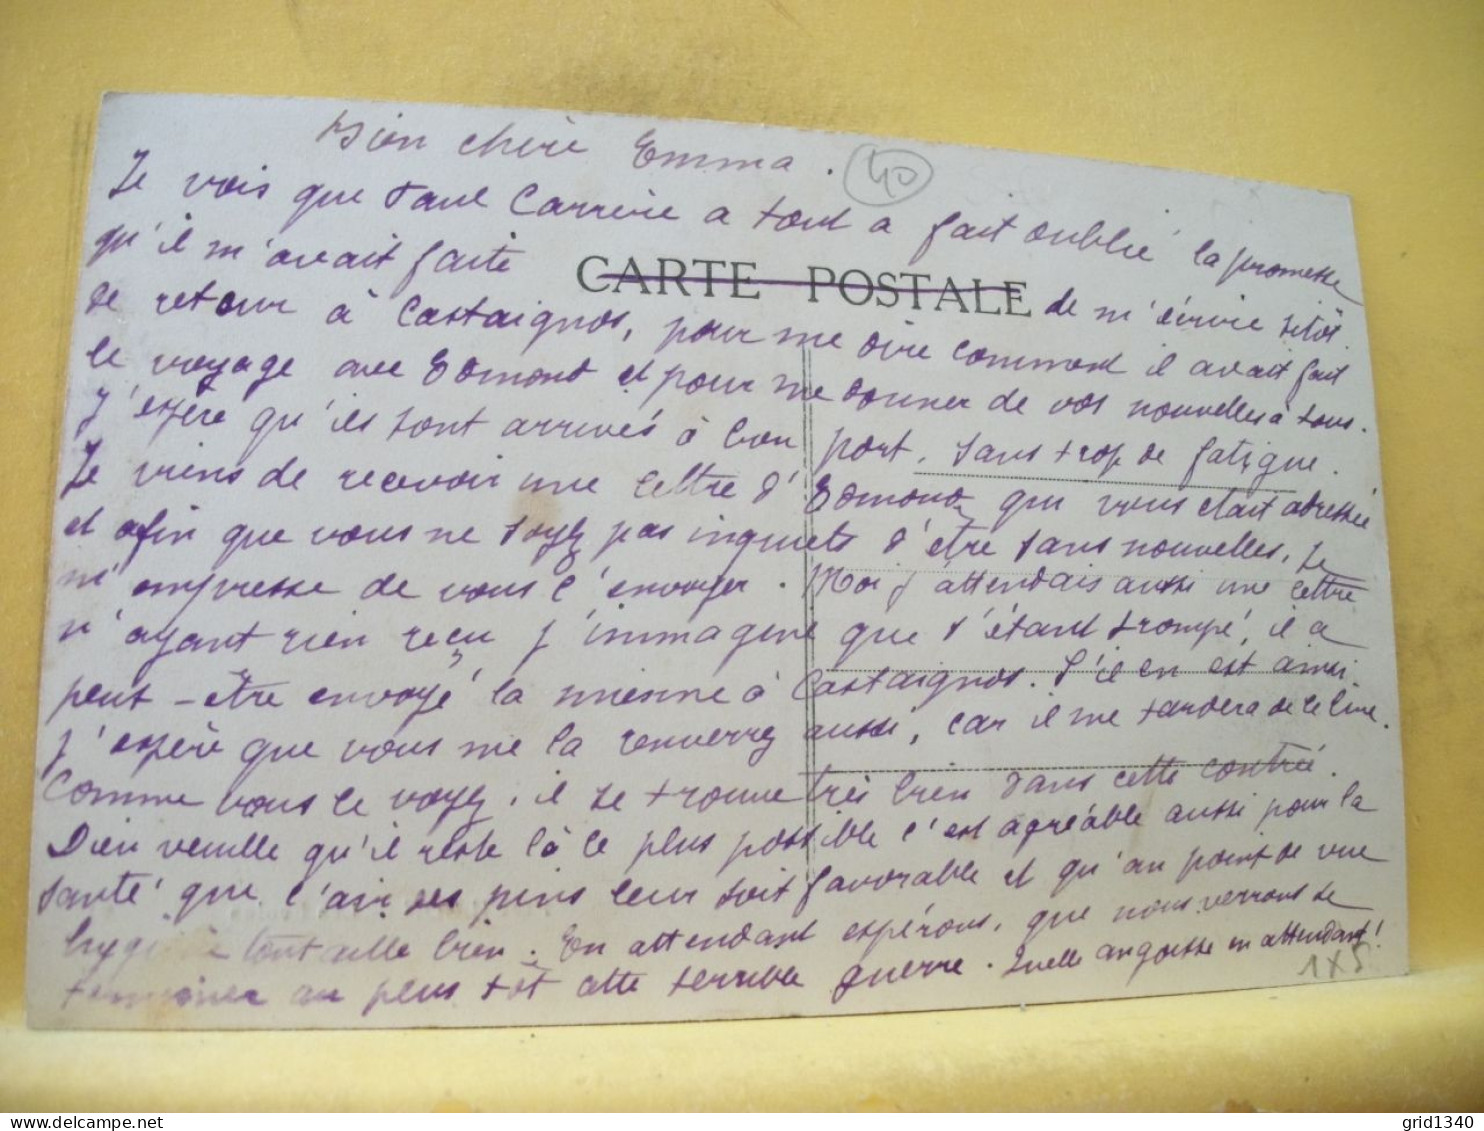 Bien chère Emma.
40
Je vois que Paul Carrère a tout à fait oublié la promesse
qu'il m'avait faite
CARTE POSTALE
de m'écrire sitôt
de retour à Castaignos, pour me dire comment il avait fait
le voyage avec Edmond et pour me donner de vos nouvelles à tous.
J'espère qu'ils sont arrivés à bon port, sans trop de fatigue.
Je viens de recevoir une lettre d'Edmond qui vous était adressée
et afin que vous ne soyez pas inquiets d'être sans nouvelles, je
m'empresse de vous l'envoyer. Moi j'attendais aussi une lettre
n'ayant rien reçu j'immagine que s'étant trompé, il a
peut-être envoyé la mienne à Castaignos. S'il en est ainsi
j'espère que vous me la renverrez aussi, car il me tardera de le lire.
Comme vous le voyez, il se trouve très bien dans cette contrée.
Dieu veuille qu'il reste là le plus possible c'est agréable aussi pour la
santé que l'air des pins leur soit favorable et qu'au point de vue
tout aille bien. En attendant espérons, que nous verrons se
terminer au plus tôt cette terrible guerre. Quelle angoisse en attendant!
1x5
grid1340